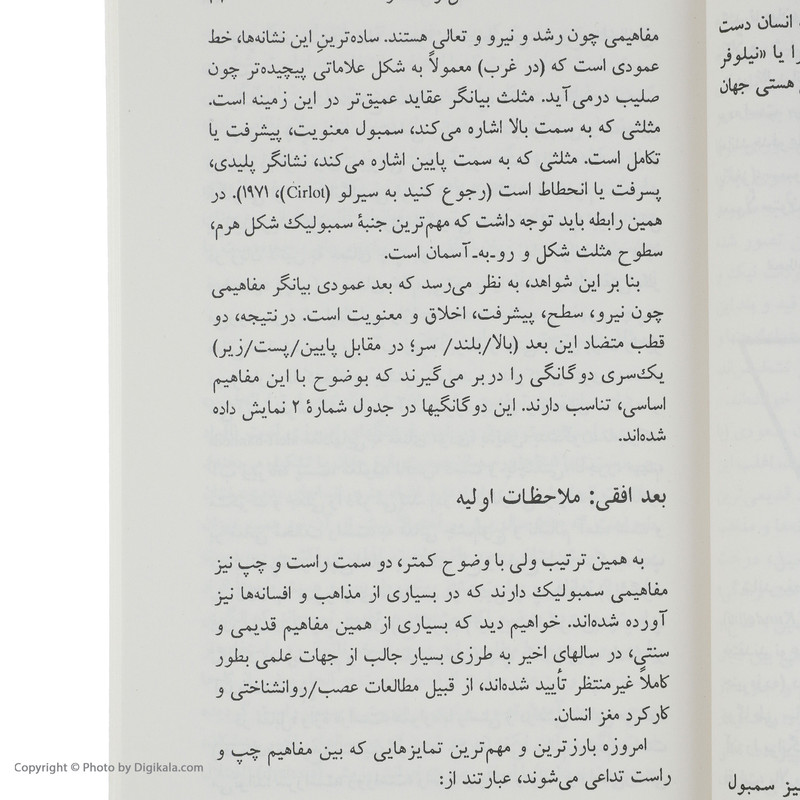 مفاهیمی چون رشد و نیرو و تعالی هستند. ساده‌ترینِ این نشانه‌ها، خط
عمودی است که (در غرب) معمولاً به شکل علاماتی پیچیده‌تر چون
صلیب درمی‌آید. مثلث بیانگر عقاید عمیق‌تر در این زمینه است.
مثلثی که به سمت بالا اشاره می‌کند، سمبول معنویت، پیشرفت یا
تکامل است. مثلثی که به سمت پایین اشاره می‌کند، نشانگر پلیدی،
پسرفت یا انحطاط است (رجوع کنید به سیرلو (Cirlot)، ۱۹۷۱). در
همین رابطه باید توجه داشت که مهم‌ترین جنبهٔ سمبولیک شکل هرم،
سطوح مثلث شکل و رو‌ـبه‌ـآسمان است.
بنا بر این شواهد، به نظر می‌رسد که بعد عمودی بیانگر مفاهیمی
چون نیرو، سطح، پیشرفت، اخلاق و معنویت است. درنتیجه، دو
قطب متضاد این بعد (بالا/بلند/ سر؛ در مقابل پایین/پست/زیر)
یک‌سری دوگانگی را دربر می‌گیرند که بوضوح با این مفاهیم
اساسی، تناسب دارند. این دوگانگیها در جدول شمارهٔ ۲ نمایش داده
شده‌اند.
بعد افقی: ملاحظات اولیه
به همین ترتیب ولی با وضوح کمتر، دو سمت راست و چپ نیز
مفاهیمی سمبولیک دارند که در بسیاری از مذاهب و افسانه‌ها نیز
آورده شده‌اند. خواهیم دید که بسیاری از همین مفاهیم قدیمی و
سنتی، در سالهای اخیر به طرزی بسیار جالب از جهات علمی بطور
کاملاً غیرمنتظر تأیید شده‌اند، از قبیل مطالعات عصب/روانشناختی و
کارکرد مغز انسان.
امروزه بارزترین و مهم‌ترین تمایزهایی که بین مفاهیم چپ و
راست تداعی می‌شوند، عبارتند از:
انسان دست
را یا «نیلوفر
هستی جهان
یز سمبول
Copyright © Photo by Digikala.com